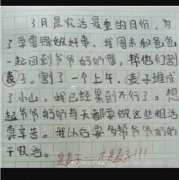 3月是农活最重的月份，为
了学雷锋做好事，我周末和爸爸
一起回到爷爷奶奶家，帮他们割
子。割了一个上午，子堆成
了小山，我已经累到不行了。想
起爷爷奶奶每天都要做这些粗活
真辛苦。我以后要多帮爷爷奶奶
干农活。
是麦子 不是子!!!